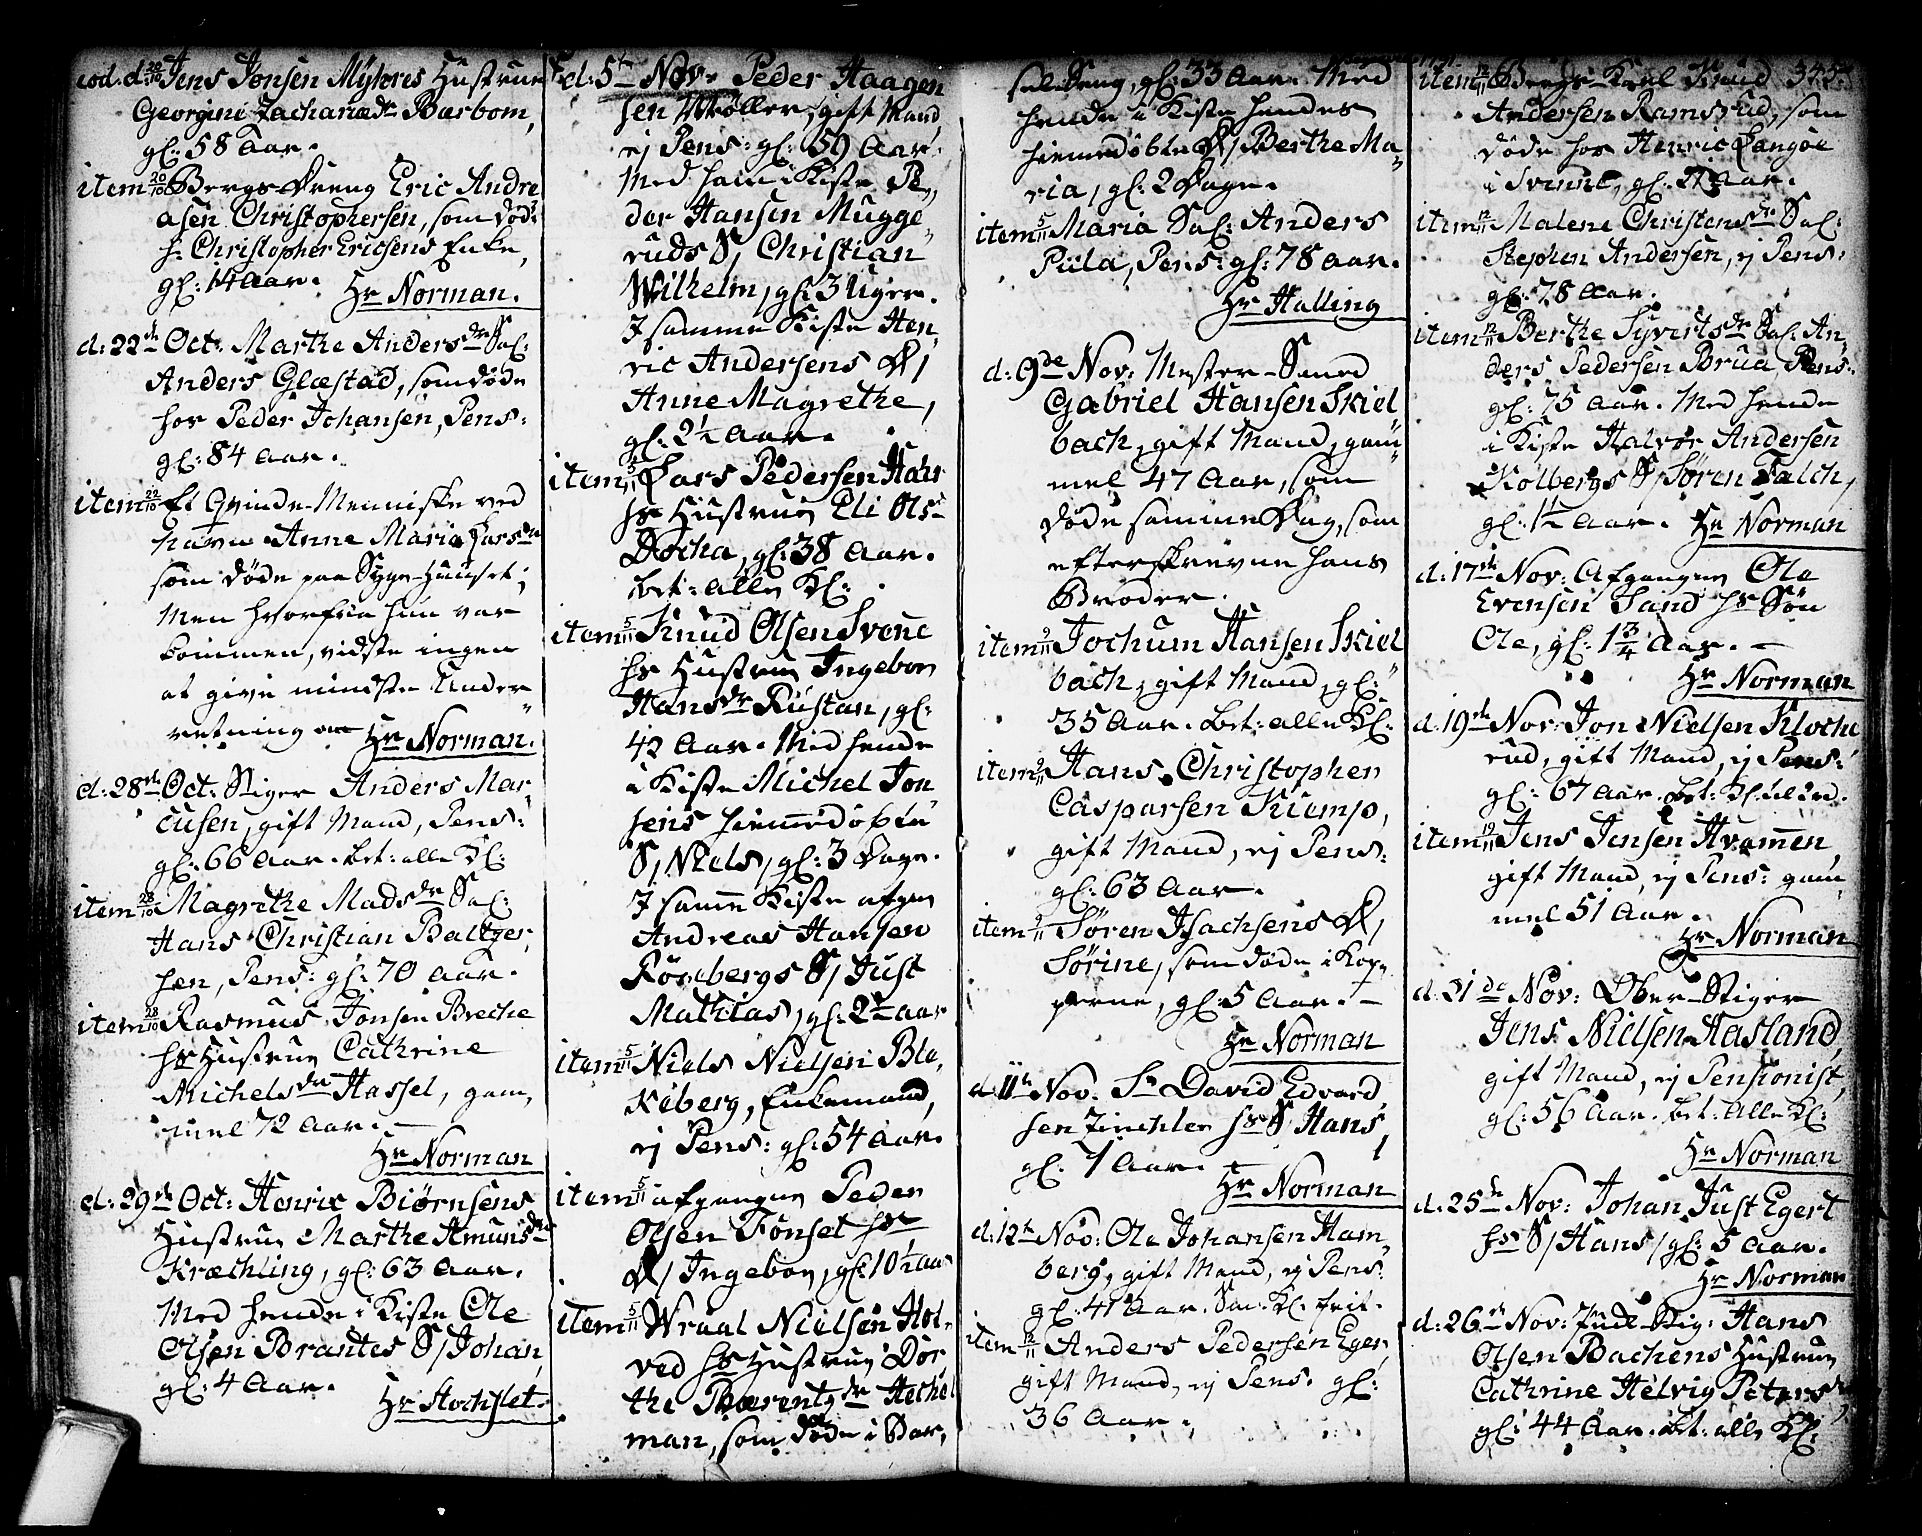 eod: d: 20/10 Jens Jonsen Myhres Hustrue
Georgini Zachariæ dr Barbom,
gl: 58 Aar.
item 20/10 Bergs Dreng Eric Andre
asen Christophersen, som død:
h: Christopher Ericsens Enke,
gl: 14 Aar. Hr Norman.
d: 22de Oct: Marthe Anders dr Sal:
Anders Glæstad, som døde
hos Peder Johansen, Pens:
gl: 84 Aar.
item 22/10 Et Qvinde-Menniske ved
Navn Anne Maria Lars dr
som døde paa Syge-Huuset;
Men hvorfra hun var
kommen, vidste ingen
at give mindste Under
retning om Hr Norman.
d: 28de Oct: Stiger Anders Mar
cusen, gift Mand, Pens:
gl: 66 Aar. bet: alle Kl:
item 28/10 Magrethe Mads dr Sal:
Hans Christian Baltzer
sen, Pens: gl: 70 Aar.
item 28/10 Rasmus Jonsen Breche
hs Hustrue Cathrine
Michels dr Hassel, gam,
mel 72 Aar. –
Hr Norman
d: 29de Oct: Henric Biørnsens
Hustrue Marthe Amuns dr
Kræchling, gl: 63 Aar.
Med hende i Kiste Ole
Olsen Brantes S/ Johan,
gl: 4 Aar.
Hr Stochflet.
d: 5te Nov: Peder Haagen
sen Møller, gift Mand,
ej Pens: gl: 59 Aar.
Med ham i Kiste Pe,,
der Hansen Mugge,,
ruds S/ Christian
Wilhelm, gl: 3 Uger.
J samme Kiste Hen
ric Andersens D/
Anne Magrethe,
gl: 2½ Aar.
item 5/11 Lars Pedersen Hahr
hs Hustrue Eli Ols
Docha, gl: 38 Aar.
bet: alle Kl:
item 5/11 Knud Olsen Svene
hs Hustrue Ingebor
Hans dr Rustan, gl:
42 Aar. Med hende
i Kiste Michel Jon
sens hiemedøbte
S/ Niels, gl: 3 Dage.
J same Kiste afgn
Andreas Hansen
Rønebergs S/ Just
Mathias, gl: 2½ Aar
item 5/11 Niels Nielsen Ble,
Keberg, Enkemand,
ej Pens: gl: 54 Aar.
item 5/11 afgangne Peder
Olsen Fonset hs
D/ Ingebor, gl: 10½ Aar
item 5/11 Wraal Nielsen Hol,
ved hs Hustrue Dor,
the Bærentz dr Hechel
man, som døde i Bar,
sel-Seng, gl: 33 Aar. Med
hende i Kiste hendes
hiemedøbte D/ Berthe Ma,,
ria, gl: 2 Dage.
item 5/11 Maria Sal: Anders
Piila, Pens: gl: 78 Aar.
Hr Halling
d: 9de Nov: Mester-Smed
Gabriel Hansen Skiel
bach, gift Mand, gam,,
mel 47 Aar, som
døde samme Dag, som
efterskrevne hans
Broder.
item 9/11 Jochum Hansen Skiel
bach, gift Mand, gl:
35 Aar. bet: alle Kl:
item 9/11 Hans Christopher
Casparsen Kiemp,
gift Mand, ej Pens:
gl: 63 Aar.
item 9/11 Søren Isachsens D/
Sørine, som døde i Kop,
perne, gl: 5 Aar. –
Hr Norman
d: 11te Nov: Sr David Edvard,
sen Zinchler hs S Hans,
gl: 1 Aar. –
Hr Norman
d: 12te Nov: Ole Johansen Ham,
berg, gift Mand, ej Pens:
gl: 41 Aar. Kl: frit.
item 12/11 Anders Pedersen Eger,
gift Mand, ej Pens: gl:
36 Aar.
item 12/11 Bergs-Karl Knud
Andersen Ramsrud, som
døde hos Henric Langøe
i Svenne, gl: Aar.
item 12/11 Malene Christens dr Sal:
Stephen Andersen, ej Pens:
gl: 78 Aar.
item 12/11 Berthe Syverts dr Sal: An
ders Pedersen Brua, Pens:
gl: 75 Aar. Med hende
i Kiste Halvor Andersen
Kolbergs S/ Søren Falch,
gl: 1½ Aar. Hr Norman
d: 17de Nov: Afgangen Ole
Evensen Sand hs Søn
Ole, gl: 1¾ Aar. –
Hr Norman
d: 19de Nov: Jon Nielsen Kloche
rud, gift Mand, ej Pens:
gl: 67 Aar. bet: Kl:
item 19/11 Jens Jensen Hvamen,
gift Mand, ej Pens: gam,
mel 51 Aar.
Hr Norman
d: 21de Nov: Ober-Stiger
Jens Nielsen Aasland,
gift Mand, ej Pensionist,
gl: 56 Aar. bet: alle Kl:
Hr Norman
d: 25de Nov: Johan Just Egert
hs S/ Hans, gl: 5 Aar.
Hr Norman
d: 26de Nov: Stig: Hans
Olsen Bachens Hustrue
Cathrine Helvig Peters dr
gl: 44 Aar. bet: alle Kl: